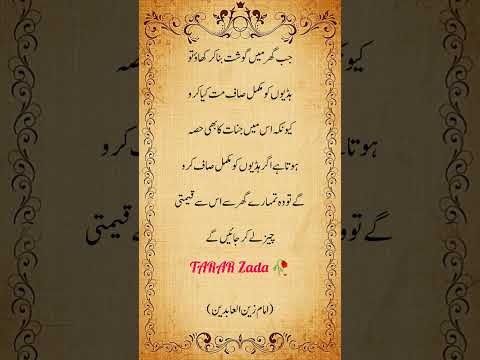 جب گھر میں گوشت بنا کر کھاؤ تو
ہڈیوں کو مکمل صاف مت کیا کرو
کیونکہ اس میں جنات کا بھی حصہ
ہوتا ہے اگر ہڈیوں کو مکمل صاف کرو
گے تو وہ تمہارے گھر سے اس سے قیمتی
چیز لے کر جائیں گے
TARAR Zada 🥀
(امام زین العابدین)